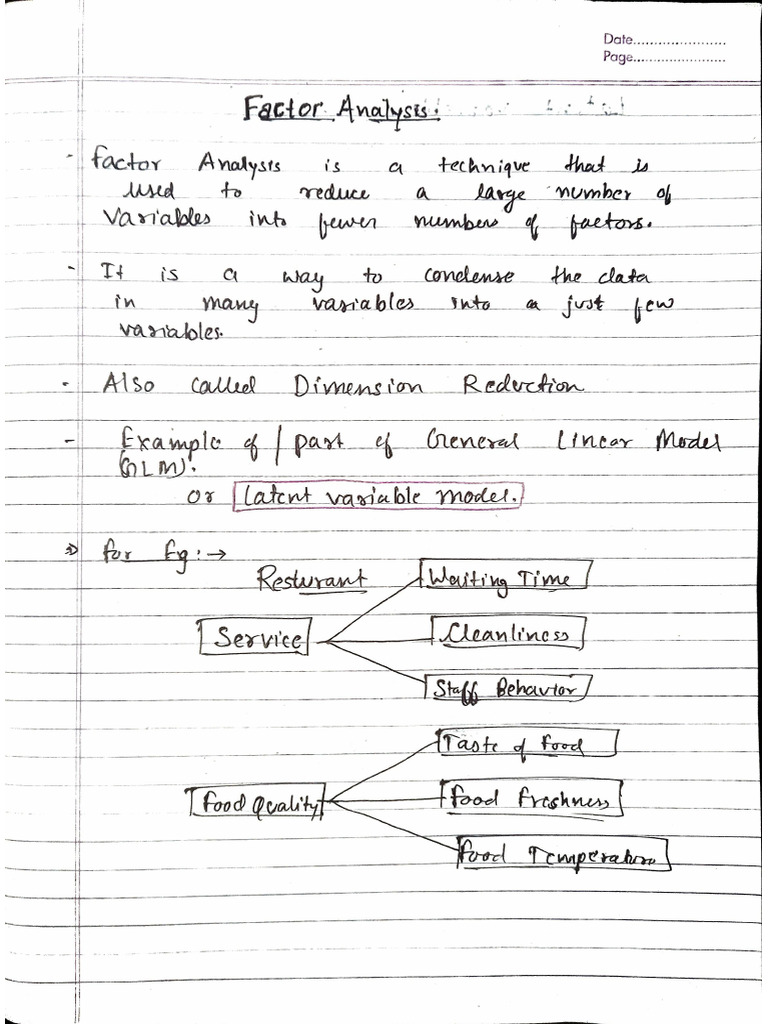 Date......................
Page.......................
Factor Analysis.
- factor Analysis is a technique that is
used to reduce a large number of
variables into fewer numbers of factors.
- It is a way to condense the data
in many variables into a just few
variables.
- Also called Dimension Reduction
- Example of / part of General Linear Model
(GLM).
or latent variable model.
⇒ for Eg: →
Resturant
Waiting Time
Service
Cleanliness
Staff Behavior
Taste of food
food Quality
food freshness
food Temperature